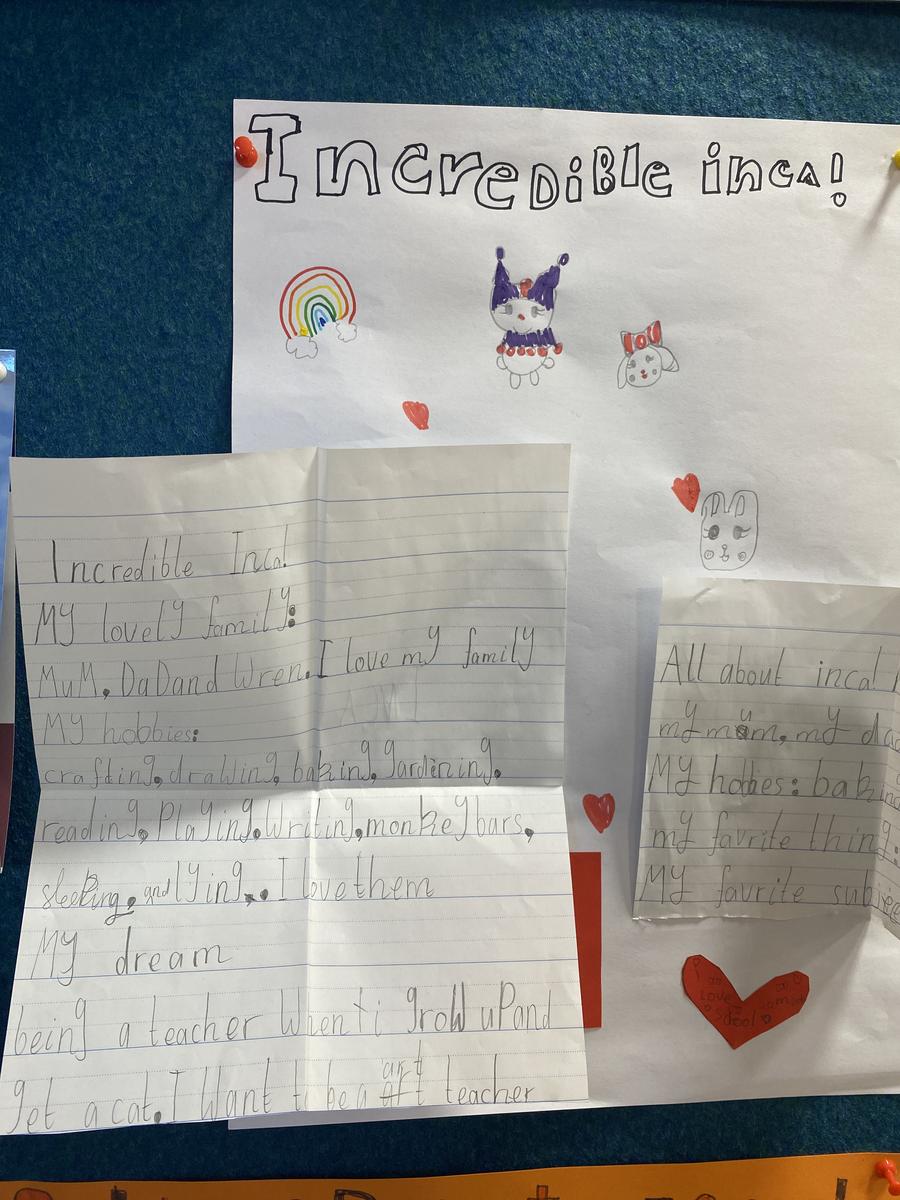 Incredible inca!
Incredible Inca!
My lovely family:
MuM, DaD and Wren. I love my family
My hobbies:
crafting, drawing, baking, gardening,
reading, Playing, Writing, monkey bars,
sleeping, and lying.. I love them
My dream
being a teacher When i grow uP and
get a cat. I Want to be a art teacher
All about inca!
my mum, my da
My hobbies: bakin
my favrite thing
My favrite subje
i
love
school